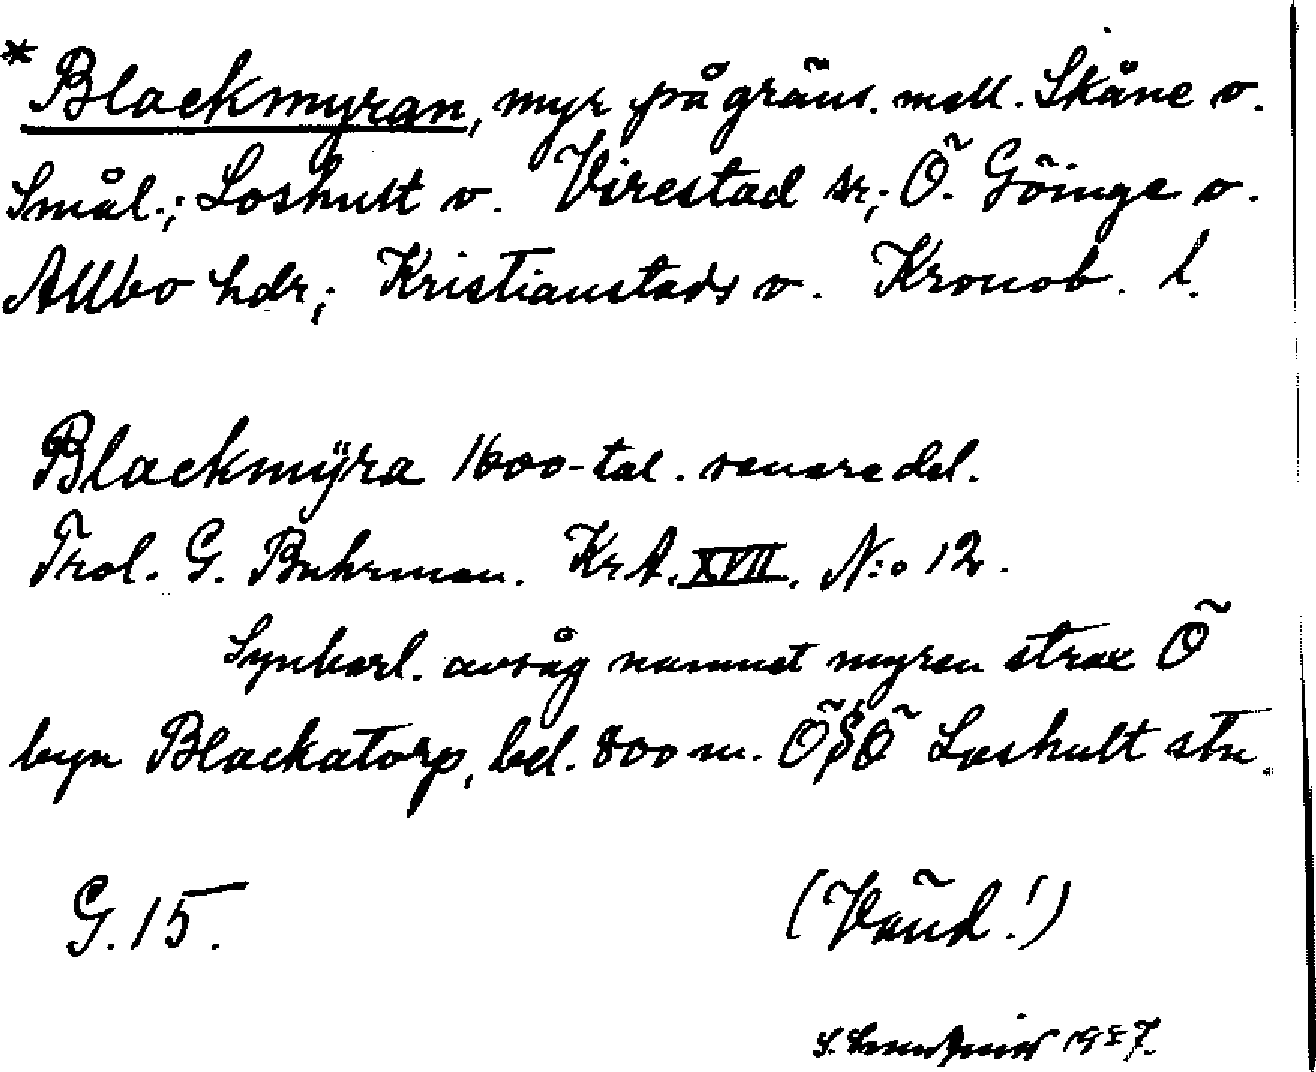 * Blackmyran, myr på gräns. mell. Skåne o.
Smål.; Loshult o. Virestad sr; Ö. Göinge o.
Allbo hdr; Kristianstads o. Kronob. l.
Blackmÿra 1600-tal. senare del.
Trol. G. Buhrman. Krt. XVII. N:o 12.
Synbarl. avsåg namnet myren strax Ö
byn Blackatorp, bel. 800 m. ÖSÖ Loshult stn.
G. 15.
(Vänd!)
S. 19